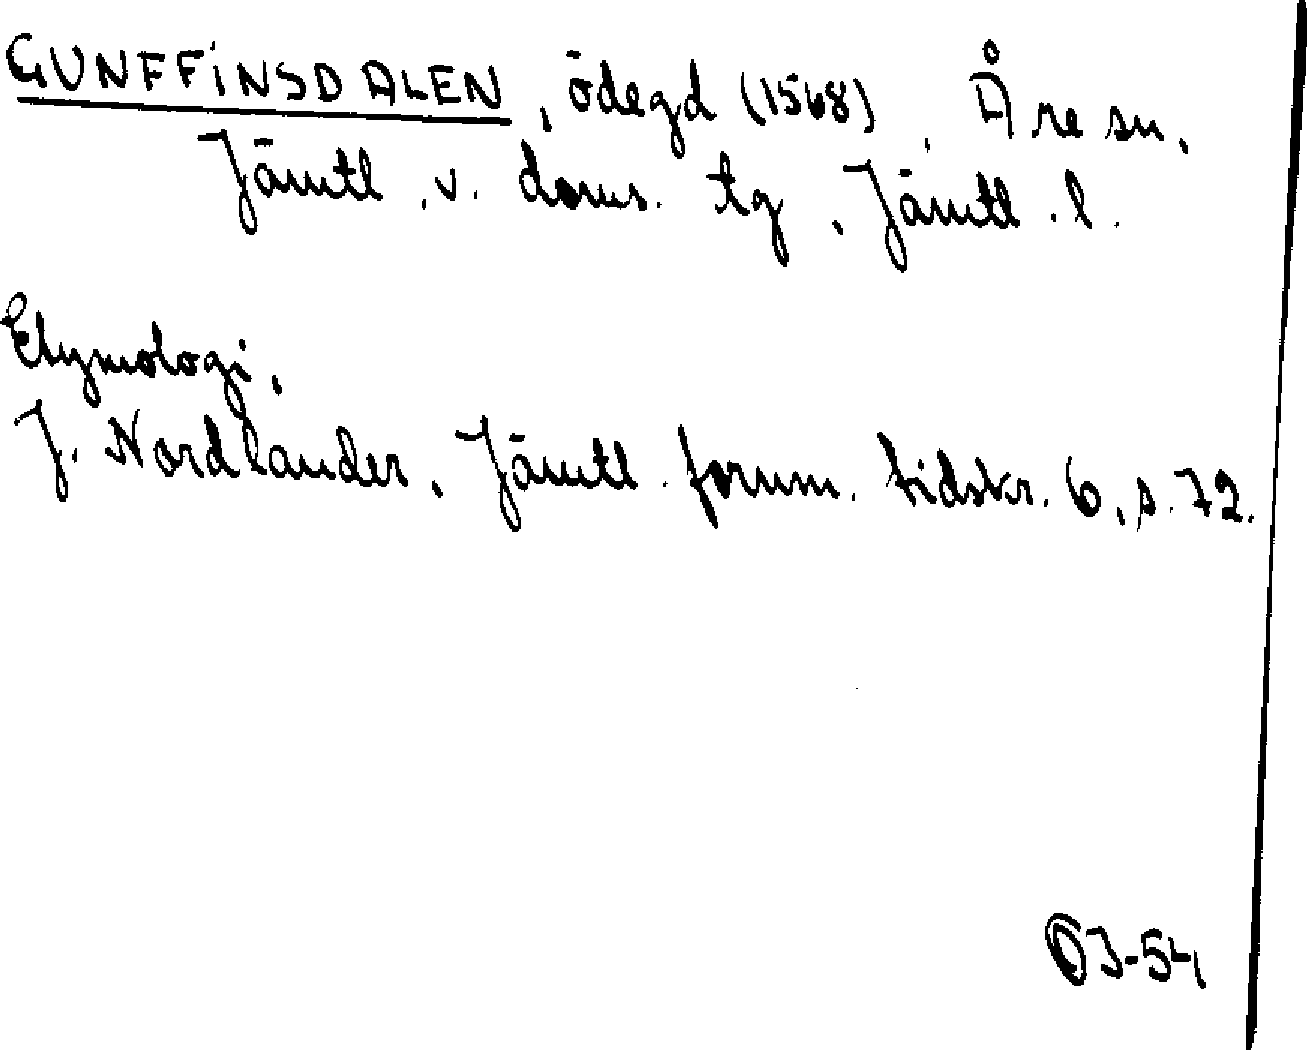 GUNFFINSDALEN, ödegd (1568), Åre sn,
Jämtl. v. doms. tg, Jämtl. l.
Etymologi.
J. Nordlander, Jämtl. fornm. tidskr. 6, s. 72.
ÖJ-54